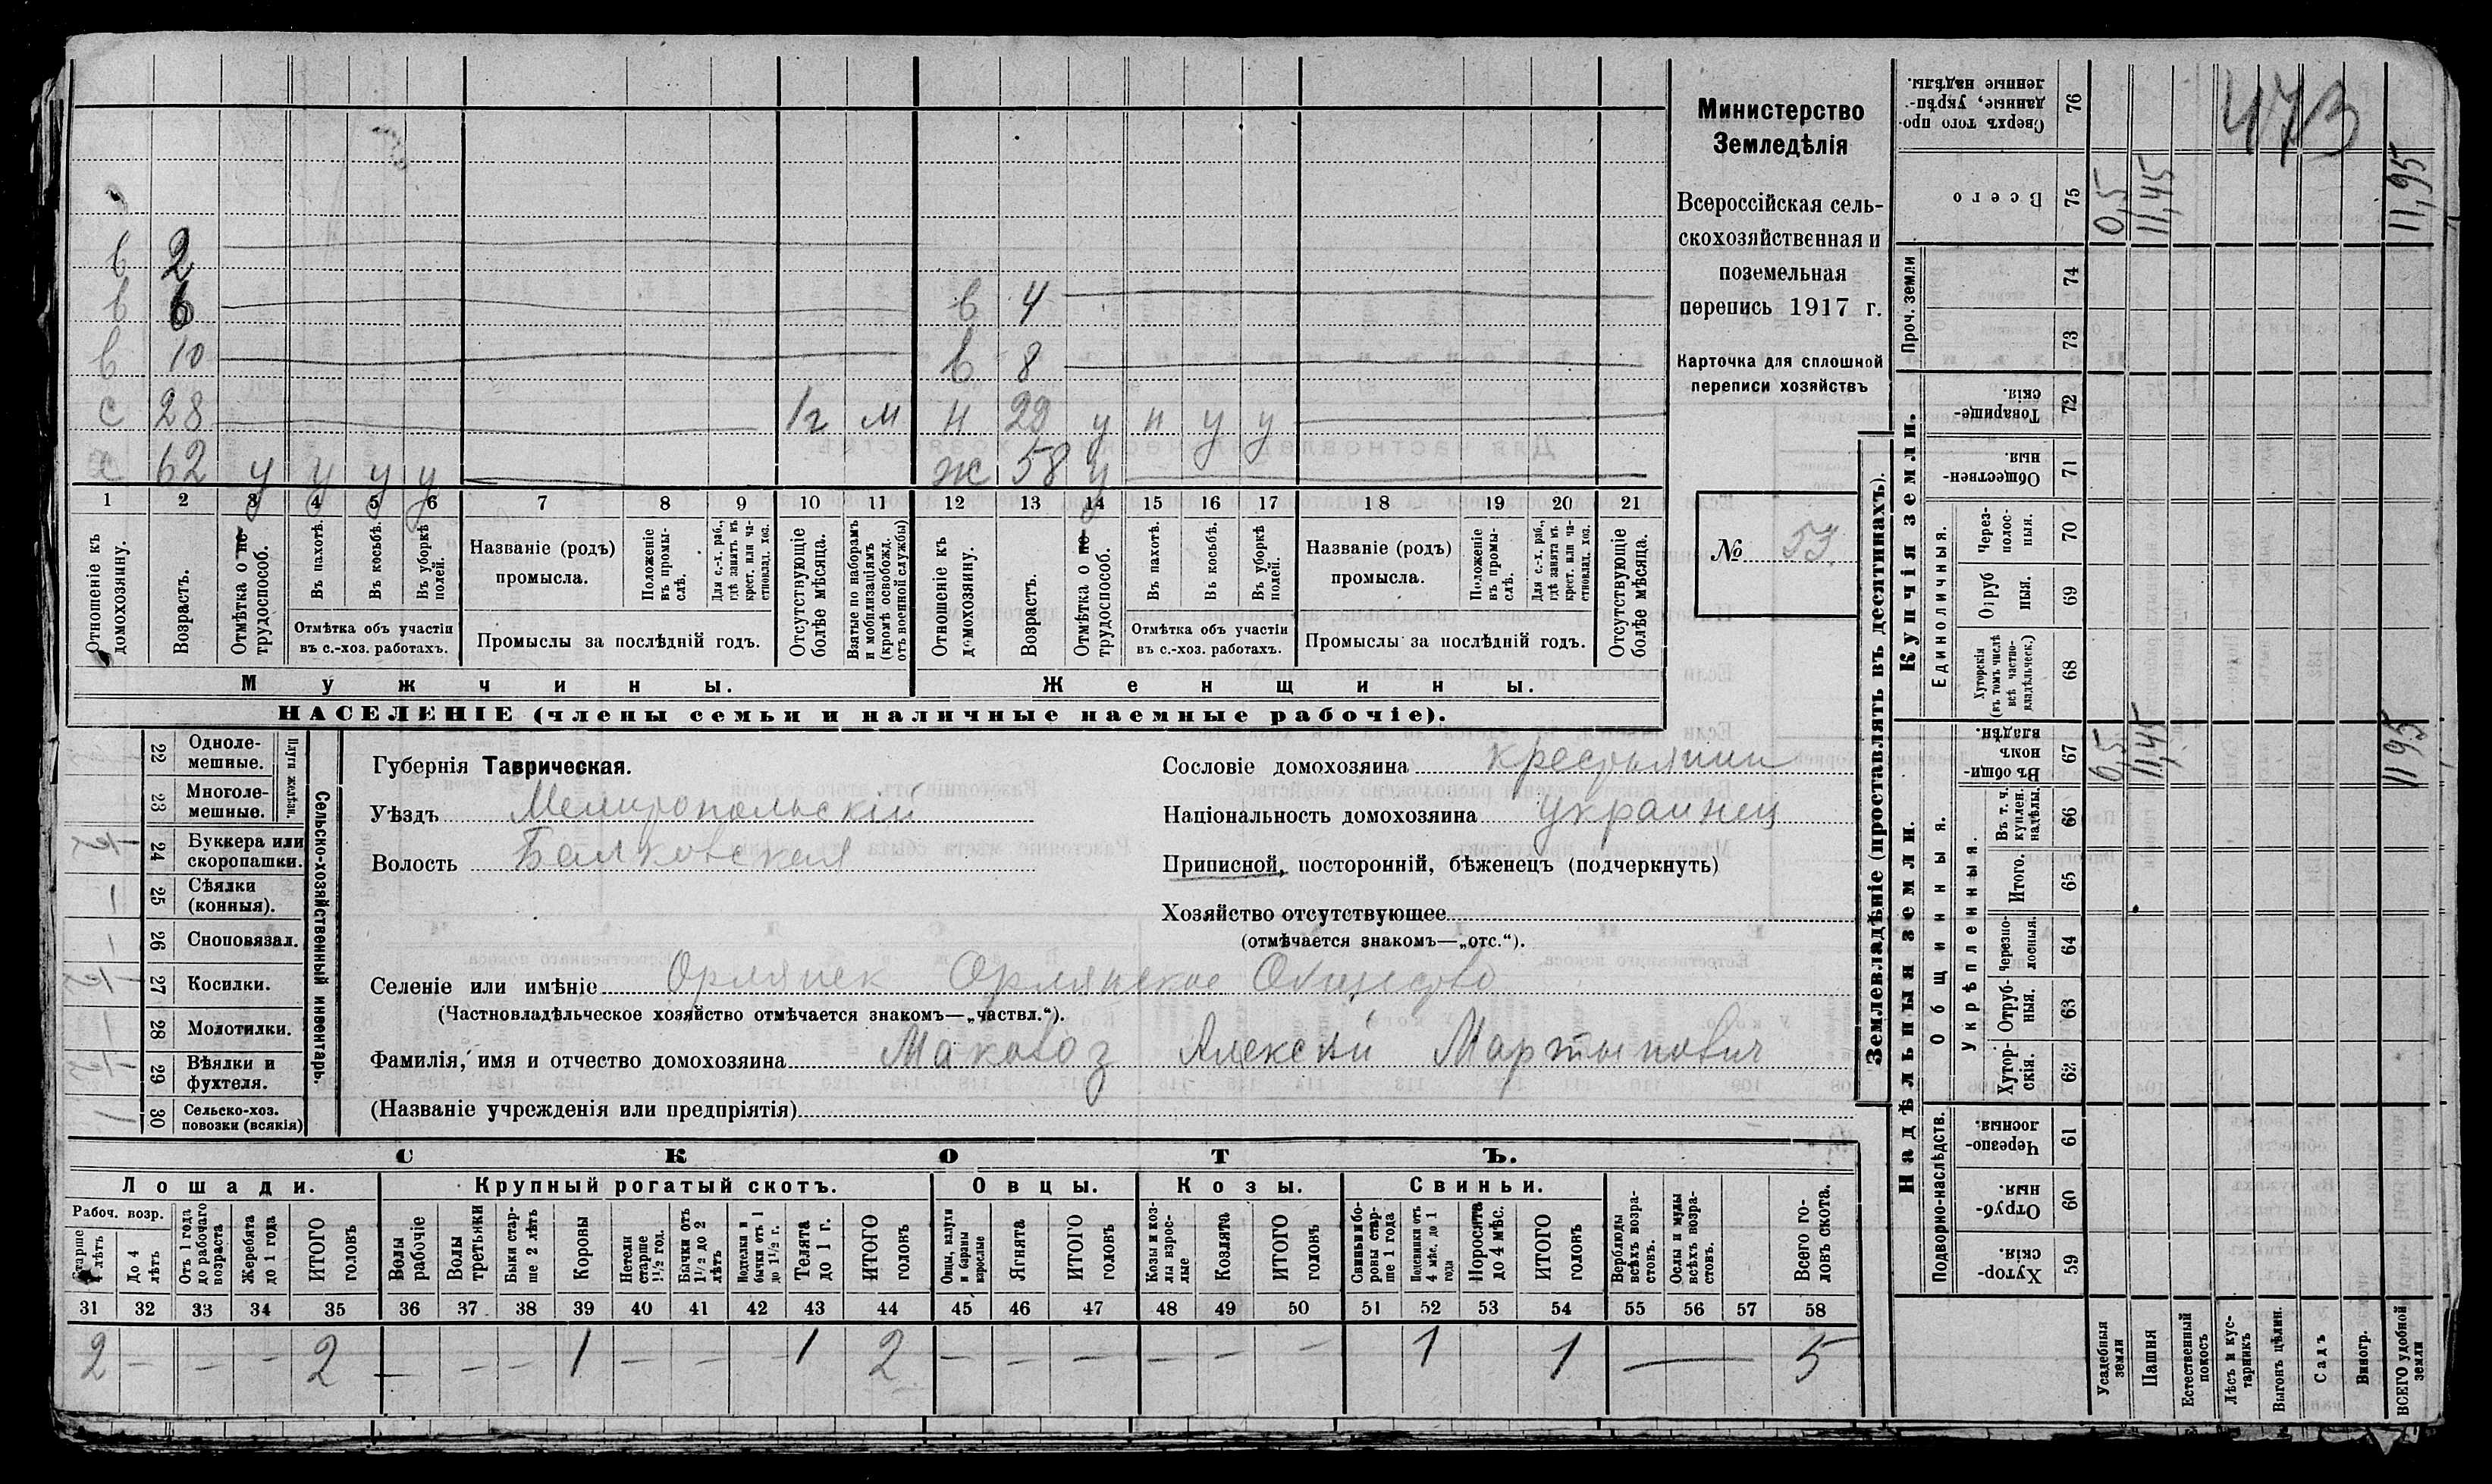 473
в 2
в 6 в 4
в 10 в 8
с 28 1г м н 22 у н у у
х 62 у у у у ж 58 у
1 2 3 4 5 6 7 8 9 10 11 12 13 14 15 16 17 18 19 20 21
Отношеніе къ домохозяину.
Возрастъ.
Отмѣтка о не трудоспособ.
Въ пахотѣ.
Въ косьбѣ.
Въ уборкѣ полей.
Отмѣтка объ участіи въ с.-хоз. работахъ.
Названіе (родъ) промысла.
Положеніе въ промыслѣ.
Для с.-х. раб., гдѣ занятъ въ крест. или частновлад. хоз.
Промыслы за послѣдній годъ.
Отсутствующіе болѣе мѣсяца.
Взятые по наборамъ и мобилизаціямъ (кромѣ освобожд. отъ военной службы)
Отношеніе къ домохозяину.
Возрастъ.
Отмѣтка о не трудоспособ.
Въ пахотѣ.
Въ косьбѣ.
Въ уборкѣ полей.
Отмѣтка объ участіи въ с.-хоз. работахъ.
Названіе (родъ) промысла.
Положеніе въ промыслѣ.
Для с.-х. раб., гдѣ занята въ крест. или частновлад. хоз.
Промыслы за послѣдній годъ.
Отсутствующіе болѣе мѣсяца.
Мужчины. Женщины.
НАСЕЛЕНІЕ (члены семьи и наличные наемные рабочіе).
Министерство
Земледѣлія
Всероссійская сель-
скохозяйственная и
поземельная
перепись 1917 г.
Карточка для сплошной
переписи хозяйствъ
№ 53
Сельско-хозяйственный инвентарь.
Плуги желѣзн.
22 Одноле-мешные.
23 Многоле-мешные.
24 Буккера или скоропашки.
25 Сѣялки (конныя). 1
26 Сноповязал. 1
27 Косилки.
28 Молотилки. 1
29 Вѣялки и фухтеля.
30 Сельско-хоз. повозки (всякія) 1
Губернія Таврическая.
Уѣздъ Мелитопольскій
Волость Балковская
Сословіе домохозяина крестьянин
Національность домохозяина украинец
Приписной, посторонній, бѣженецъ (подчеркнуть)
Хозяйство отсутствующее
(отмѣчается знакомъ—„отс.“).
Селеніе или имѣніе Орлянск Орлянское Общество
(Частновладѣльческое хозяйство отмѣчается знакомъ—„частвл.“).
Фамилія, имя и отчество домохозяина Маковоз Алексѣй Мартынович
(Названіе учрежденія или предпріятія)
СКОТЪ.
Лошади. Крупный рогатый скотъ. Овцы. Козы. Свиньи.
Рабоч. возр.
Старше 4 лѣтъ
До 4 лѣтъ
Отъ 1 года до рабочаго возраста
Жеребята до 1 года
ИТОГО головъ
Волы рабочіе
Волы третьяки
Быки старше 2 лѣтъ
Коровы
Нетели старше 1½ год.
Бычки отъ 1½ до 2 лѣтъ
Подтелки и бычки отъ 1 до 1½ г.
Телята до 1 г.
ИТОГО головъ
Овцы, валухи и бараны взрослые
Ягнята
ИТОГО головъ
Козы и козлы взрослые
Козлята
ИТОГО головъ
Свиньи и боровы старше 1 года
Подсвинки отъ 4 мѣс. до 1 года
Поросята до 4 мѣс.
ИТОГО головъ
Верблюды всѣхъ возрастовъ.
Ослы и мулы всѣхъ возрастовъ.
Всего головъ скота.
31 32 33 34 35 36 37 38 39 40 41 42 43 44 45 46 47 48 49 50 51 52 53 54 55 56 57 58
2 — — — 2 — — — 1 — — — 1 2 — — — — — — 1 1 — 5
Землевладѣніе (проставлять въ десятинахъ).
Купчія земли.
Надѣльныя земли.
Сверхъ того проданные, укрѣпленные надѣлы. 76
Всего 75 0,5 11,45 11,95
Проч. земли 74 73
Товарищескія. 72
Общественныя. 71
Единоличныя.
Черезполосныя. 70
Отрубныя. 69
Хуторскія (въ томъ числѣ всѣ частновладѣльческ.) 68
Общинныя.
Въ общинномъ владѣн. 67 0,5 11,45 11,95
Укрѣпленныя.
Въ т. ч. куплен. надѣлы. 66
Итого. 65
Черезполосныя. 64
Отрубныя. 63
Хуторскія. 62
Подворно-наслѣдств.
Черезполосныя. 61
Отрубныя. 60
Хуторскія. 59
Усадебныя земли
Пашня
Естественный покосъ
Лѣсъ и кустарникъ
Выгонъ цѣлин.
Садъ
Виногр.
ВСЕГО удобной земли